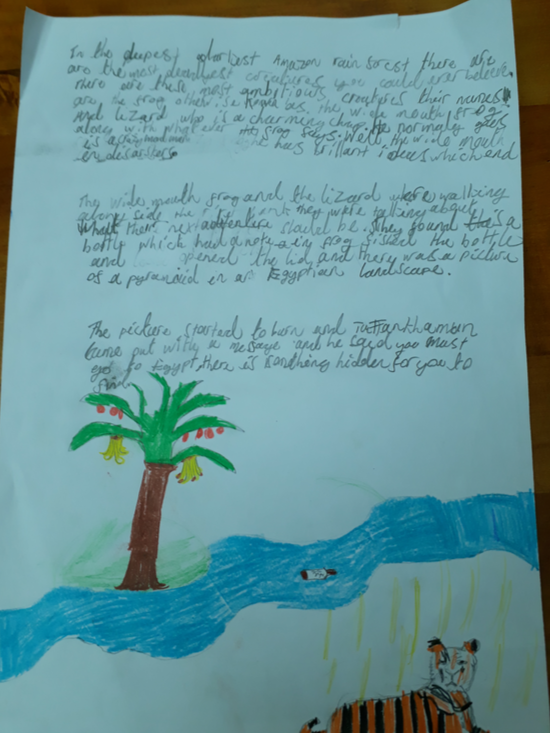 In the deepest Amazon rain forest there are
are the most deadliest creatures you could ever believe.
there are these most ambitious creatures their names
are the frog other is the wide mouth frog
And lizard who is a charming chap. He normally goes
along with what ever frog says. Well the wide mouth
is a he has brillant ideas which end
in desasters.
The wide mouth frog and the lizard were walking
along side the they were talking about
what their next adventure should be. They found a
bottle which had a note in frog the bottle
and opened the lid and there was a picture
of a pyramid in an Egyptian landscape.
The picture started to burn and Tutankhamun
came out with a message and he said you must
go to Egypt there is something hidden for you to
find